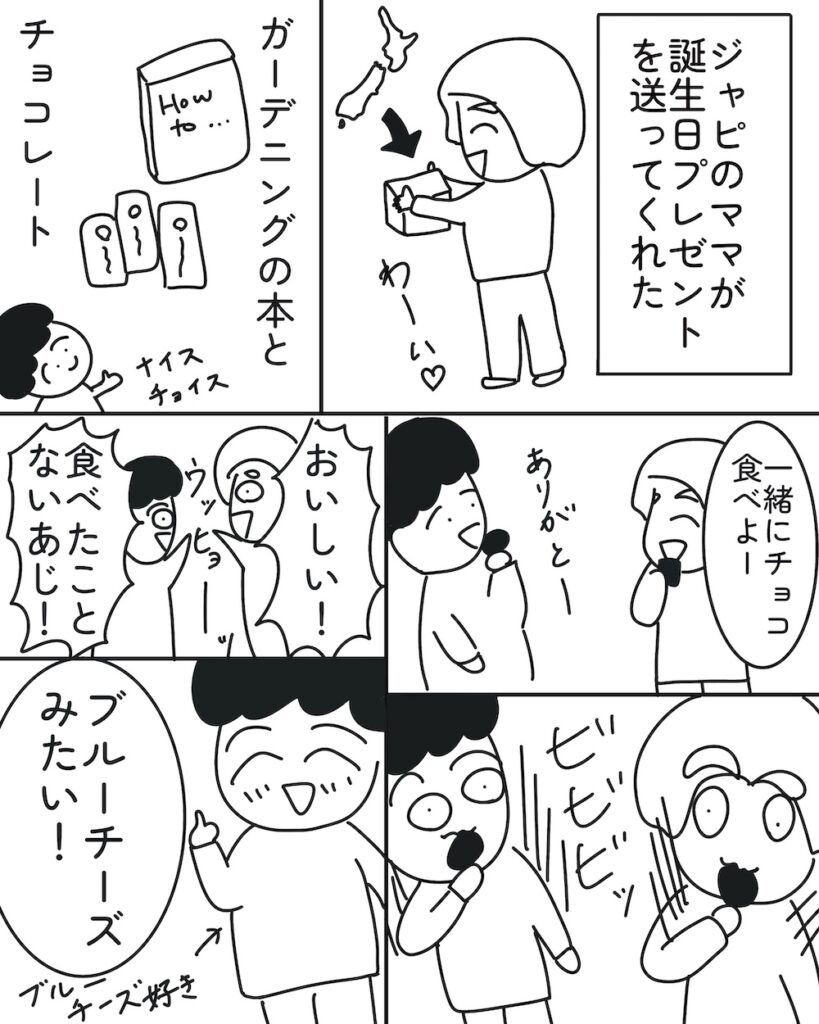 ジャピのママが
誕生日プレゼント
を送ってくれた
わーい♡
ガーデニングの本と
チョコレート
How
to...
ナイス
チョイス
一緒にチョコ
食べよー
ありがとー
おいしい!
ウッヒョーッ
食べたこと
ないあじ!
ビビビッ
ブルーチーズ
みたい!
ブルー
チーズ好き